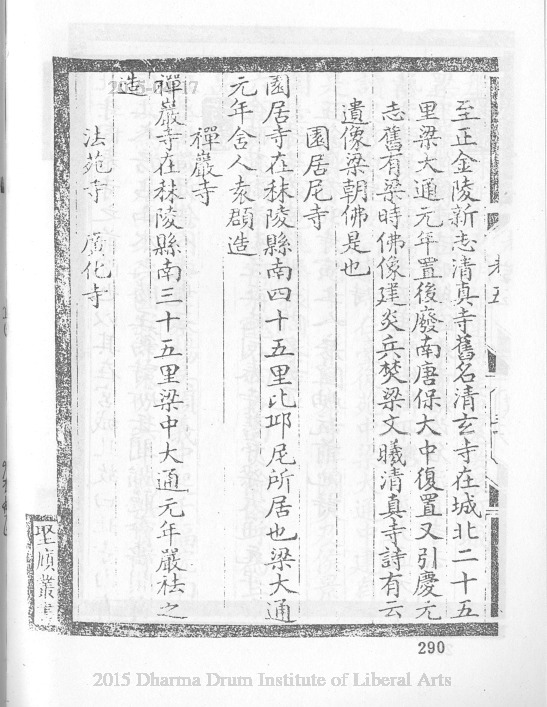 至正金陵新志清真寺舊名清玄寺在城北二十五
里梁大通元年置後廢南唐保大中復置又引慶元
志舊有梁時佛像建炎兵焚梁文曦清真寺詩有云
遺像梁朝佛是也
園居尼寺
園居寺在秣陵縣南四十五里比邱尼所居也梁大通
元年舍人袁顗造
禪巖寺
禪巖寺在秣陵縣南三十五里梁中大通元年嚴祛之
造
法苑寺 廣化寺
290
2015 Dharma Drum Institute of Liberal Arts